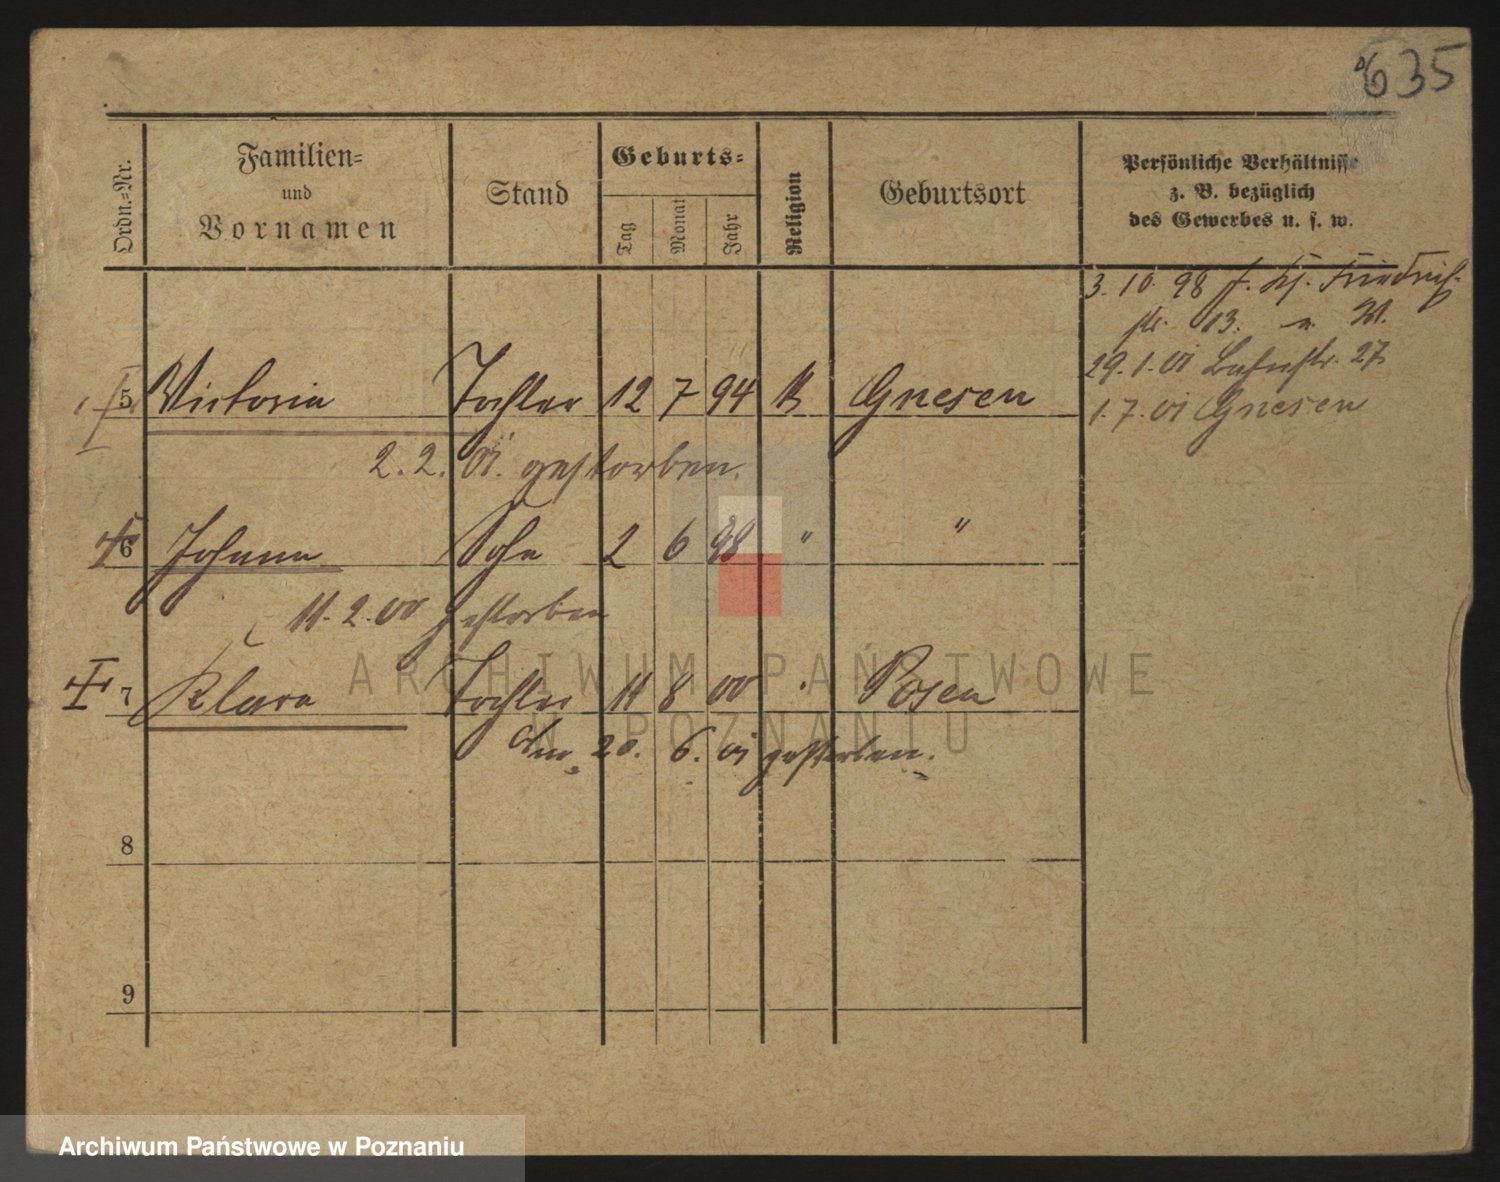 635
Ordn.-Nr.
Familien-
und
Vornamen
Stand
Geburts-
Tag
Monat
Jahr
Religion
Geburtsort
Persönliche Verhältnisse
z. B. bezüglich
des Gewerbes u. s. w.
3. 10. 98 Friedrich-
str. 13.
29. 1. 01 27
1. 7. 01 Gnesen
5 Victoria Tochter 12 7 94 K Gnesen
2. 2. 01. gestorben.
6 Johann Sohn 2 6 98 " "
11. 2. 00 gestorben
7 Klara Tochter 11 8 00 Posen
20. 6. 01 gestorben.
8
9
ARCHIWUM PAŃSTWOWE
W POZNANIU
Archiwum Państwowe w Poznaniu